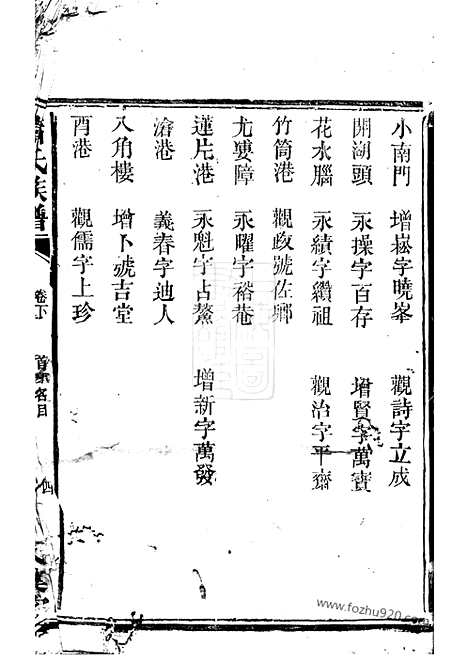 小南門　增崧字曉峯　觀詩字立成
開湖頭　永操字百存　增賢字萬寶
花水腦　永績字纘祖　觀治字平齋
竹筒港　觀政號佐鄉
尤婁障　永曜字裕菴
蓮片港　永魁字占鰲　增新字萬發
滄港　義春字迪人
八角樓　增卜號吉堂
酉港　觀儒字上珍
氏族譜
卷下
首 名目
四
www.fozhu920.com